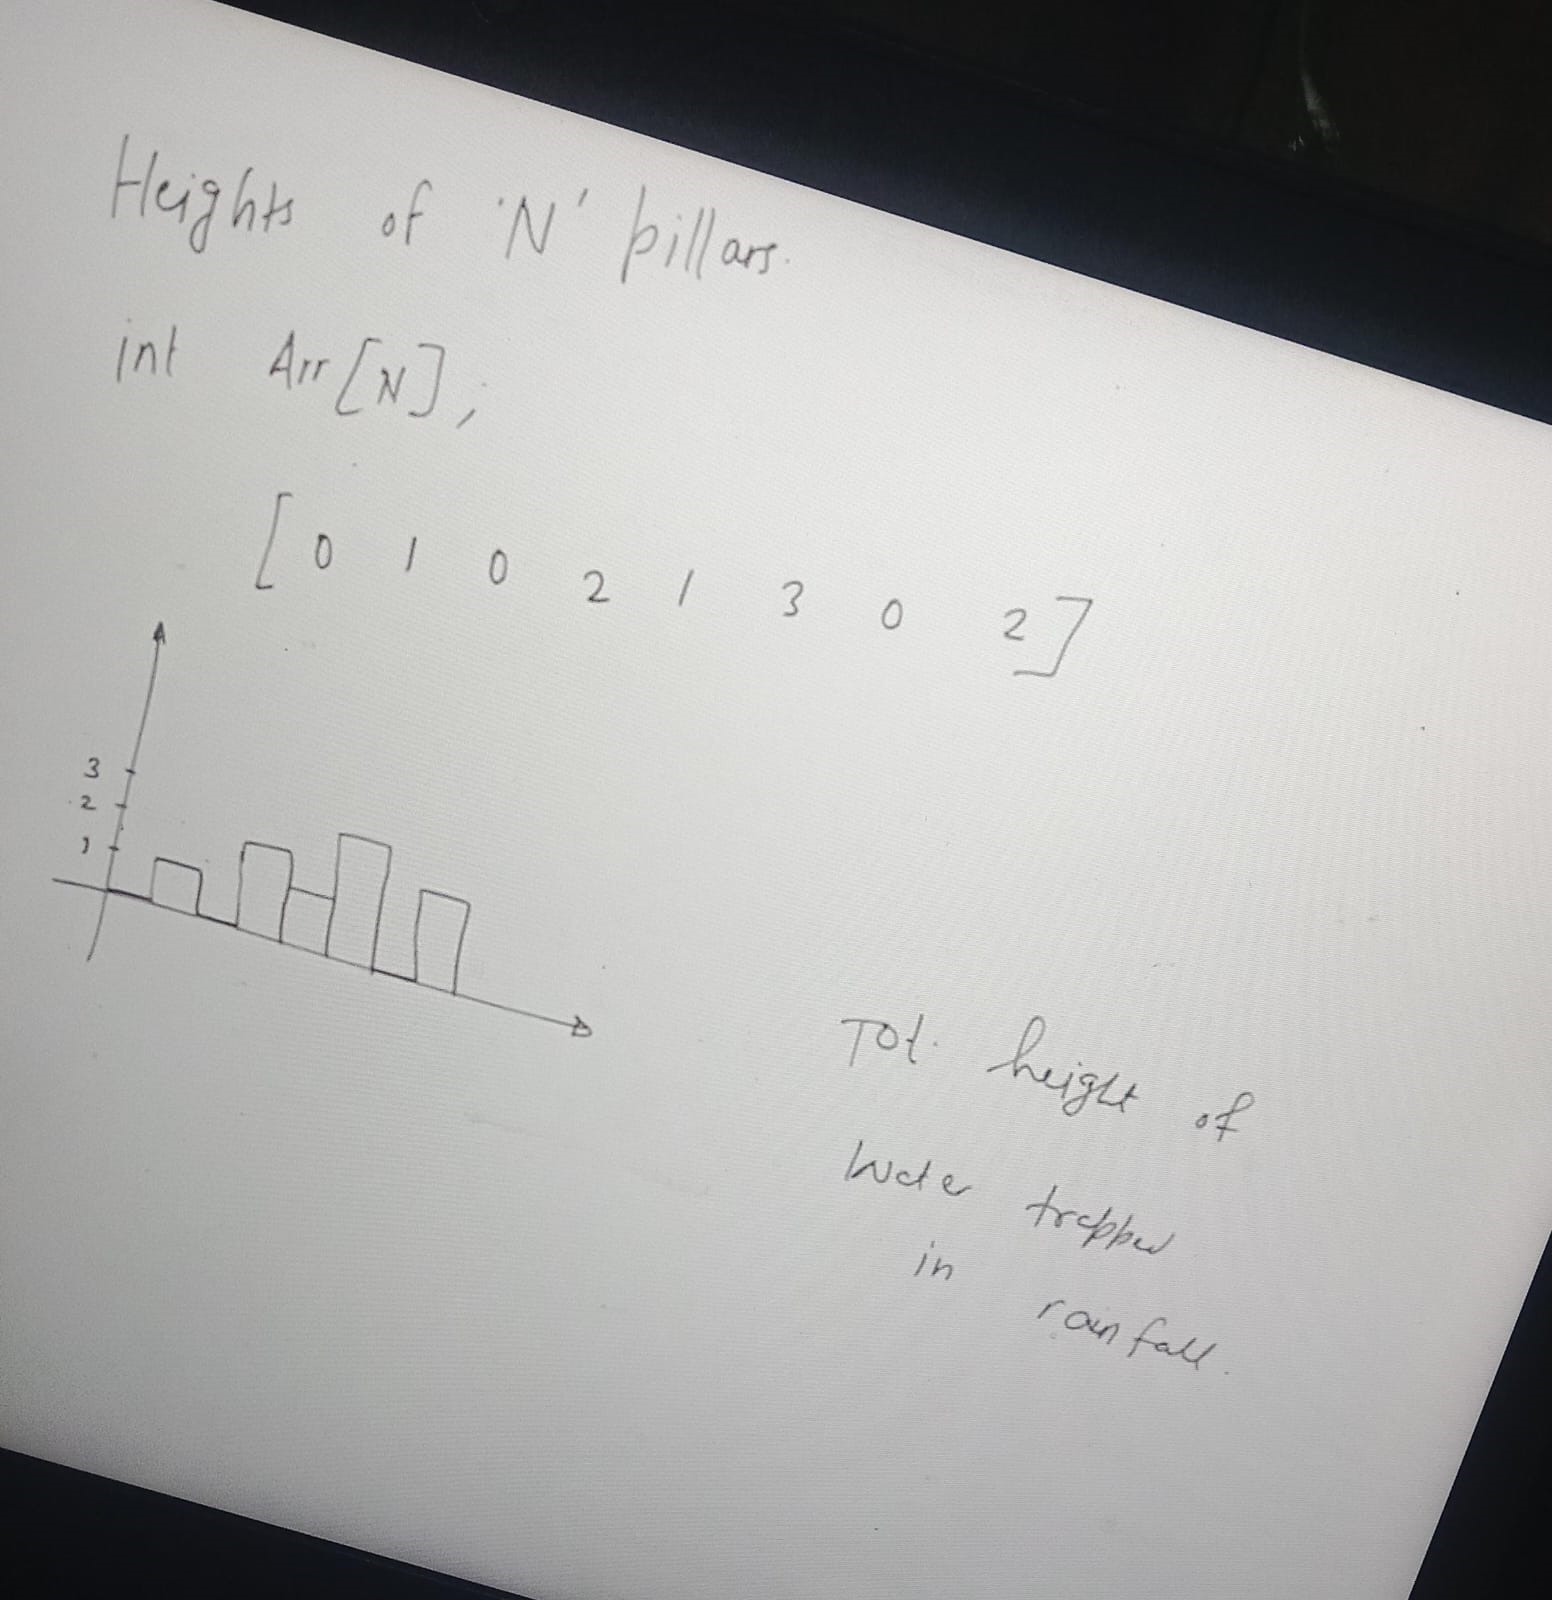 Heights of 'N' pillars.
int Arr[N];
[0 1 0 2 1 3 0 2]
3
2
1
Tot. height of
Water trapped
in rainfall.